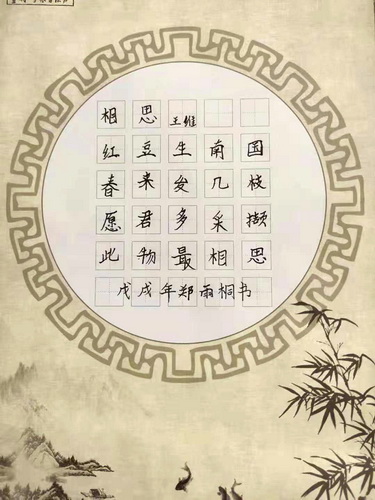 相思 王维
红豆生南国
春来发几枝
愿君多采撷
此物最相思
戊戌年郑雨桐书